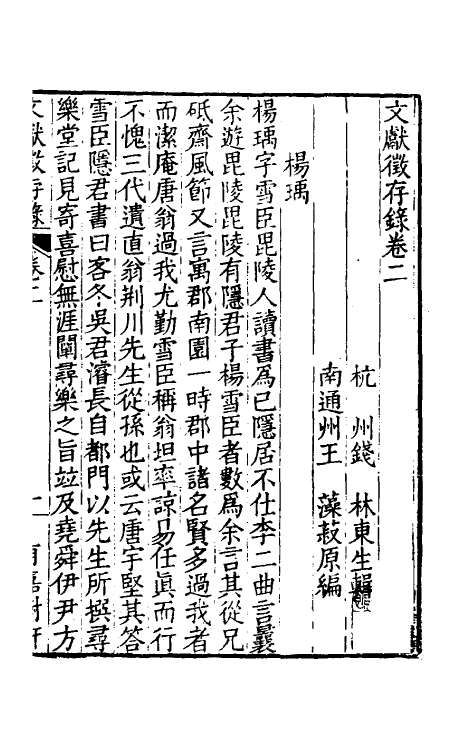 文獻徵存錄卷二
杭州錢林東生輯
南通州王藻菽原編
楊瑀
楊瑀字雪臣毘陵人讀書爲已隱居不仕李二曲言曩
余遊毘陵毘陵有隱君子楊雪臣者數爲余言其從兄
砥齋風節又言寓郡南園一時郡中諸名賢多過我者
而潔庵唐翁過我尤勤雪臣稱翁坦率諒易任眞而行
不愧三代遺直翁荆川先生從孫也或云唐宇堅其答
雪臣隱君書曰客冬吳君濬長自都門以先生所撰尋
樂堂記見寄喜慰無涯闡尋樂之旨竝及堯舜伊尹方
文獻徵存錄 卷二